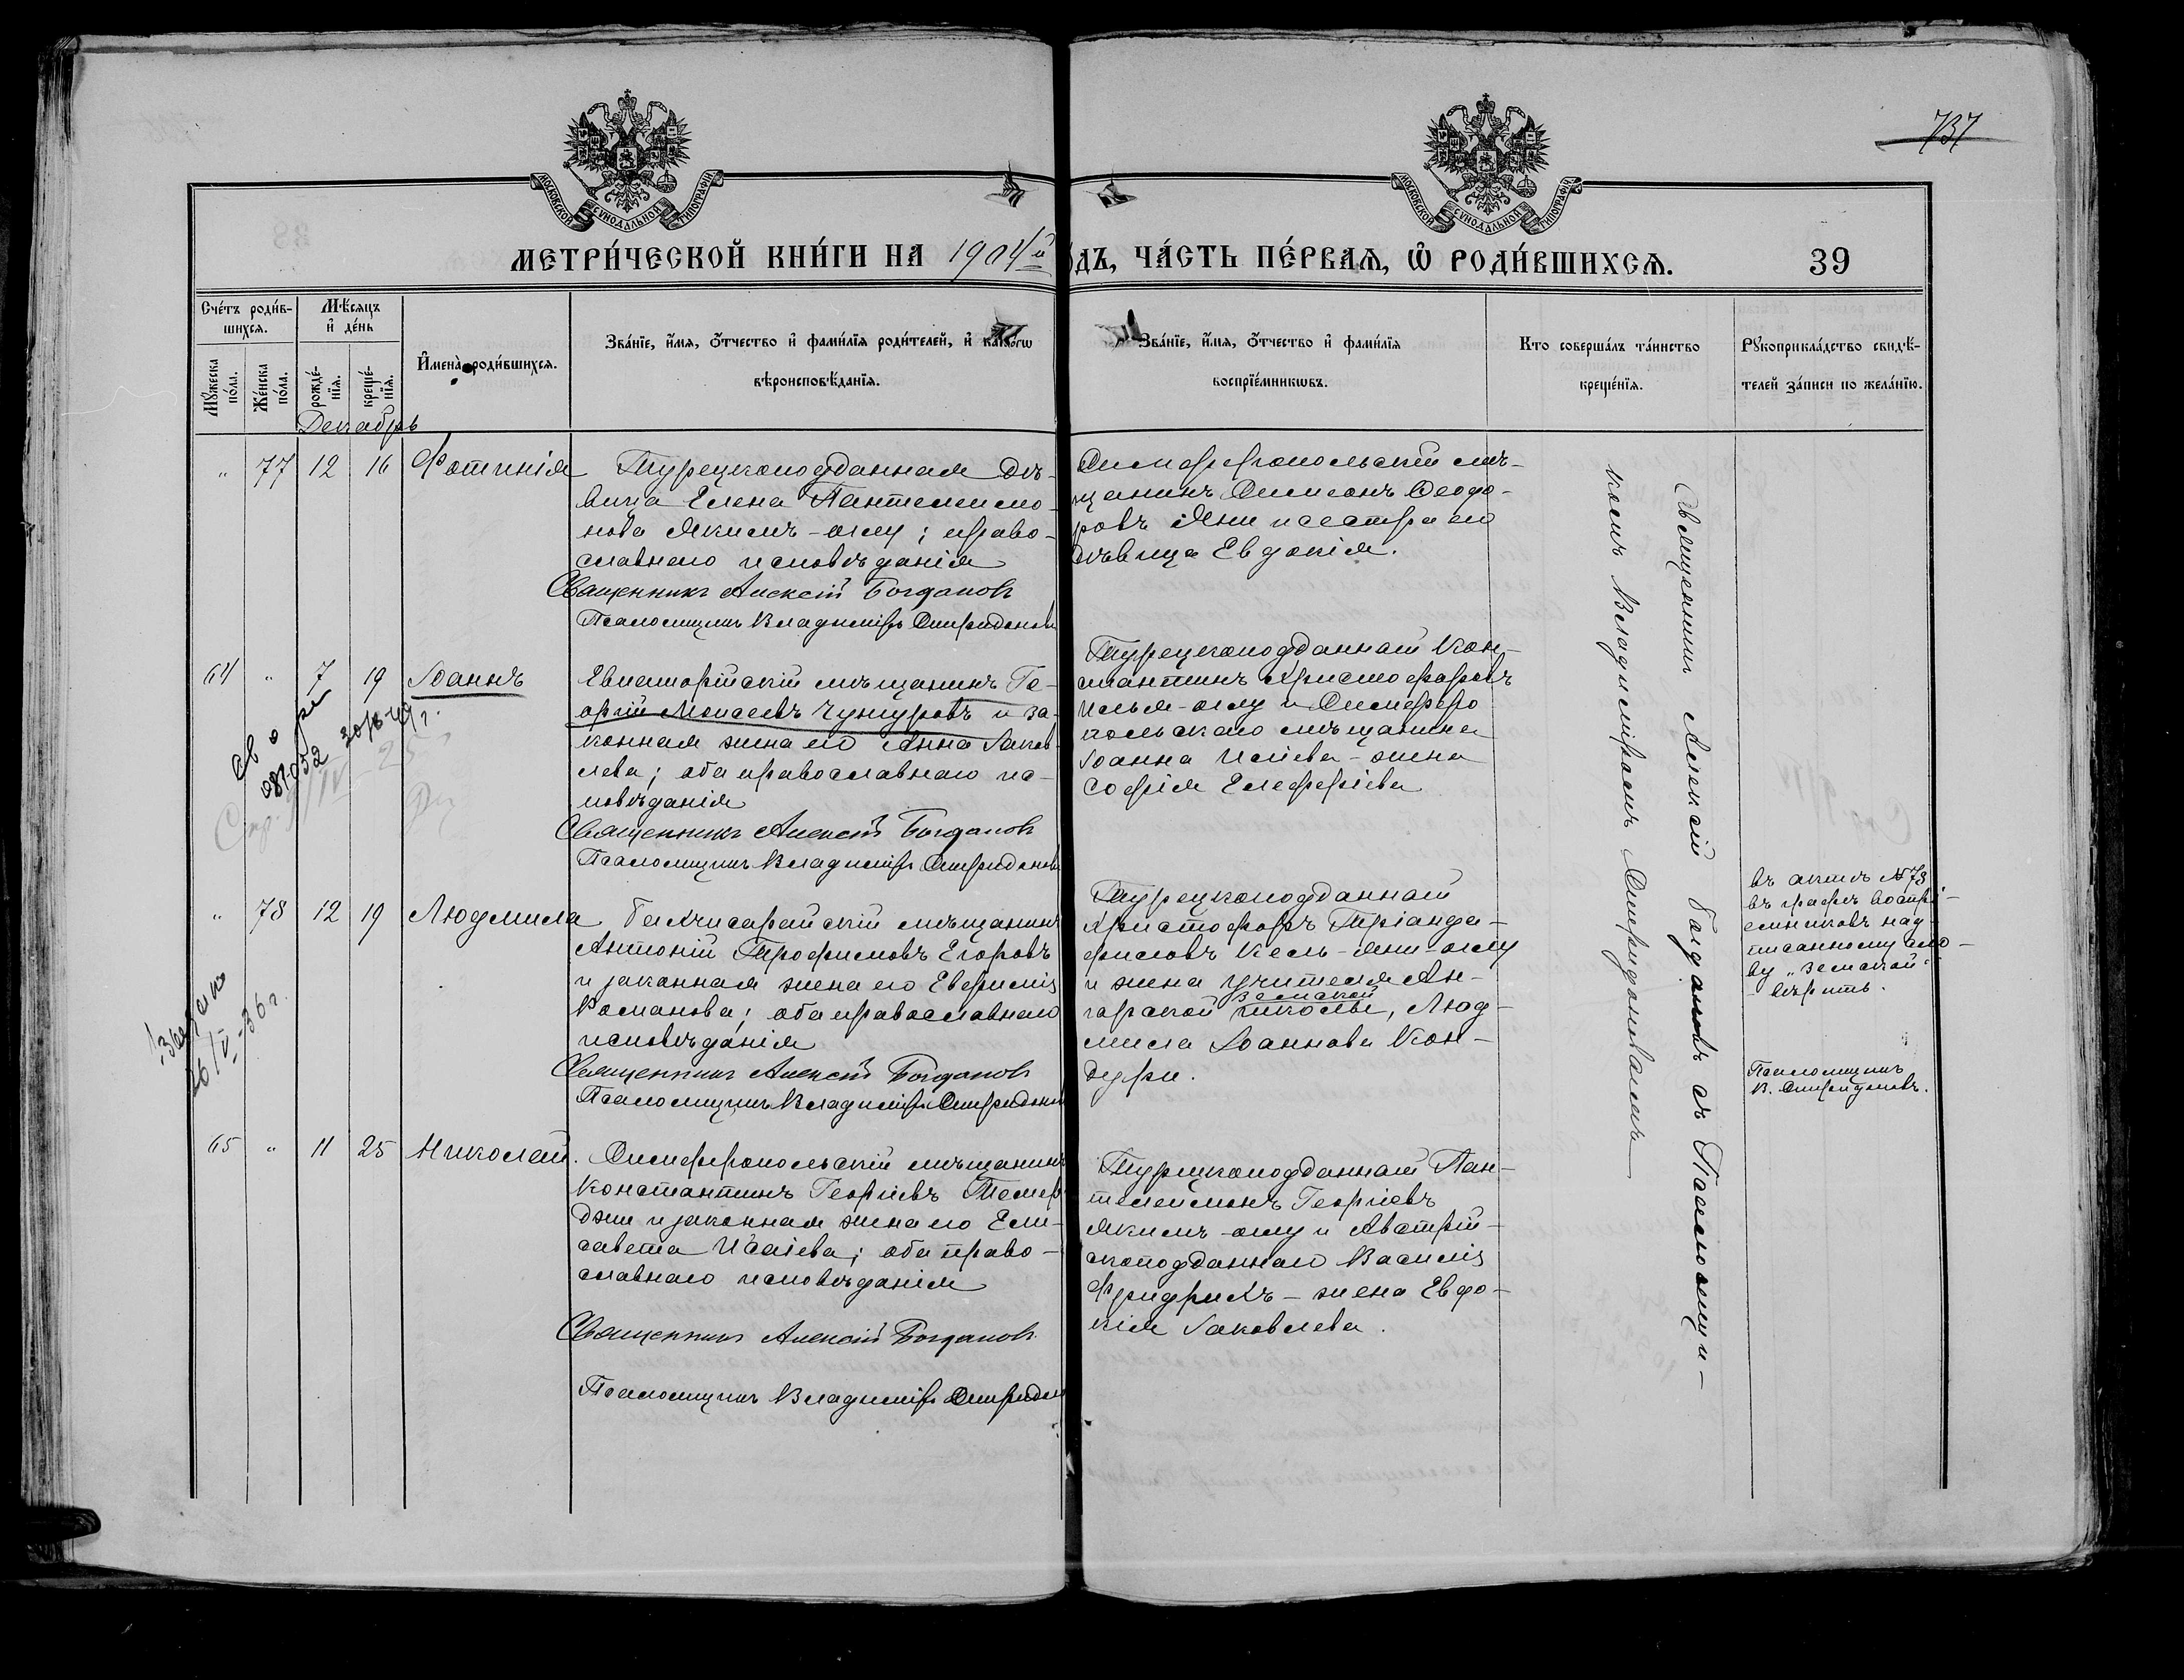 737
МОСКОВСКОЙ СѴНОДАЛЬНОЙ ТИПОГРАФІИ
МОСКОВСКОЙ СѴНОДАЛЬНОЙ ТИПОГРАФІИ
МЕТРИ́ЧЕСКОЙ КНИ́ГИ НА 1904й
ДЪ, ЧА́СТЬ ПЕ́РВАѦ, Ѡ҆ РОДИ́ВШИХСѦ. 39
Сче́тъ роди́в-
шихсѧ.
Мѣ́сяцъ
и҆ де́нь
Мꙋ́жеска
по́ла.
Же́нска
по́ла.
рожде́-
нїѧ.
креще́-
нїѧ.
И҆мена̀ роди́вшихсѧ.
Зва́нїе, и҆́мѧ, ѻ҆́тчество и҆ фами́лїѧ роди́телей, и҆ како́гѡ
вѣроисповѣ́данїѧ.
Зва́нїе, и҆́мѧ, ѻ҆́тчество и҆ фами́лїѧ
воспрїе́мникѡвъ.
Кто соверша́лъ та́инство
креще́нїѧ.
Рꙋкоприкла́дство свидѣ́-
телей за́писи по жела́нїю.
Декабрь
" 77 12 16 Фотинія
Турецкоподданная дѣ-
вица Елена Пантелеимо-
нова Якимъ-оглу; право-
славнаго исповѣданія
Священникъ Алексій Богдановъ
Псаломщикъ Владиміръ Спиридоновъ
Симферопольскій мѣ-
щанинъ Симеонъ Ѳеодо-
ровъ Яни и сестра его
дѣвица Евдокія.
64 " 7 19 Іоаннъ
Евпаторійскій мѣщанинъ Ге-
оргій Моисеевъ Чунгуровъ и за-
конная жена его Анна Іаков-
лева; оба православнаго ис-
повѣданія
Священникъ Алексій Богдановъ
Псаломщикъ Владиміръ Спиридоновъ
Турецкоподданный Кон-
стантинъ Христофоровъ
Ильи-оглу и Симферо
польскаго мѣщанина
Іоанна Исаева - жена
Софія Елевферіева
" 78 12 19 Людмила
Бахчисарайскій мѣщанинъ
Антоній Трофимовъ Егоровъ
и законная жена его Евфимія
Романова; оба православнаго
исповѣданія
Священникъ Алексій Богдановъ
Псаломщикъ Владиміръ Спиридоновъ
Турецкоподданный
Христофоръ Тріанда-
филовъ Кель-Яни-оглу
и жена учителя Ан-
земской
гарской школы, Люд-
мила Іоаннова Кон-
дури.
въ актѣ № 78
въ графѣ воспрі-
емниковъ над-
писанному сло-
ву "земской"
вѣрить.
Псаломщикъ
В. Спиридоновъ.
26/V-36 г.
65 " 11 25 Николай.
Симферопольскій мѣщанинъ
Константинъ Георгіевъ Темер-
джи и законная жена его Ели-
савета Исаіева; оба право-
славнаго исповѣданія
Священникъ Алексій Богдановъ
Псаломщикъ Владиміръ Спиридон
Турецкоподданный Пан-
телеимонъ Георгіевъ
Якимъ-оглу и Австрій-
скоподданнаго Василія
Фридрихъ - жена Евдо-
кія Іаковлева.
Священникъ Алексій Богдановъ съ Псаломщи-
комъ Владиміромъ Спиридоновымъ